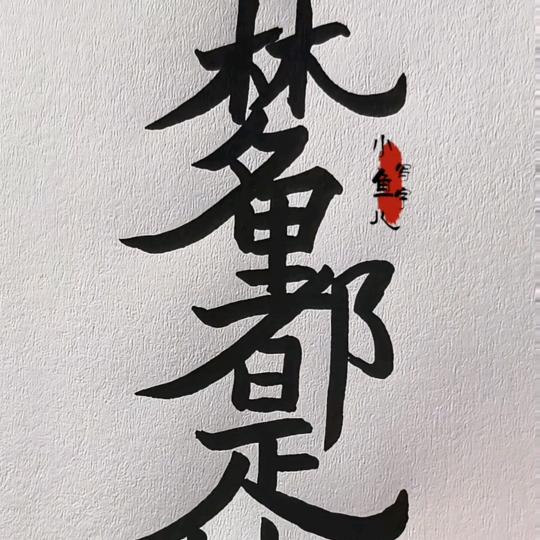 梦
里
都
是
小鱼儿
写字